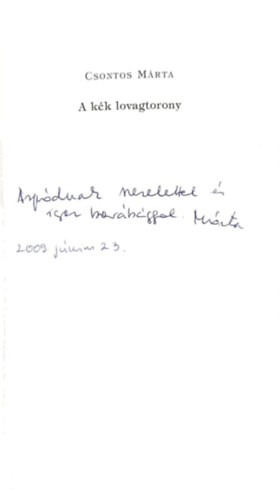 CSONTOS MÁRTA
A kék lovagtorony
Árpádnak szeretettel és
igaz barátsággal. Márta
2009 június 23.